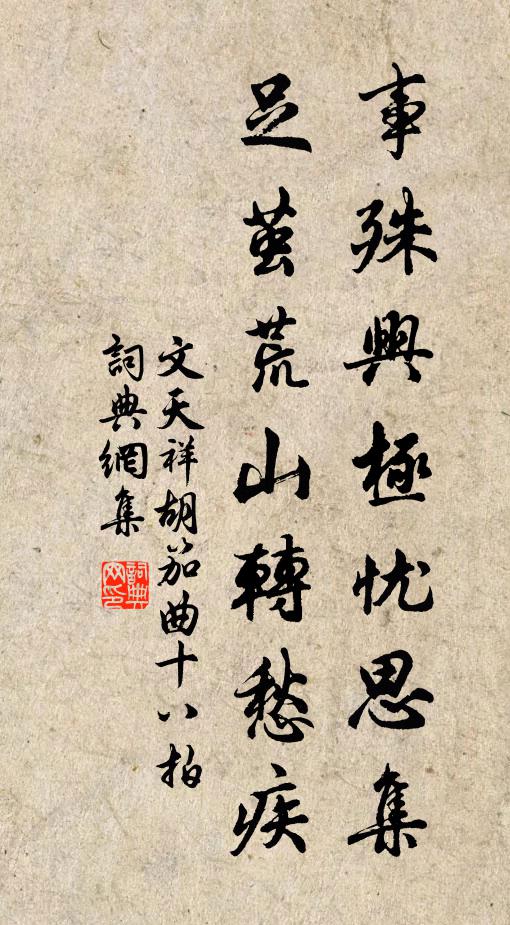 事殊興極忧思集
足茧荒山轉愁疾
文天祥胡笳曲十八拍
詞典網集
詞典网印